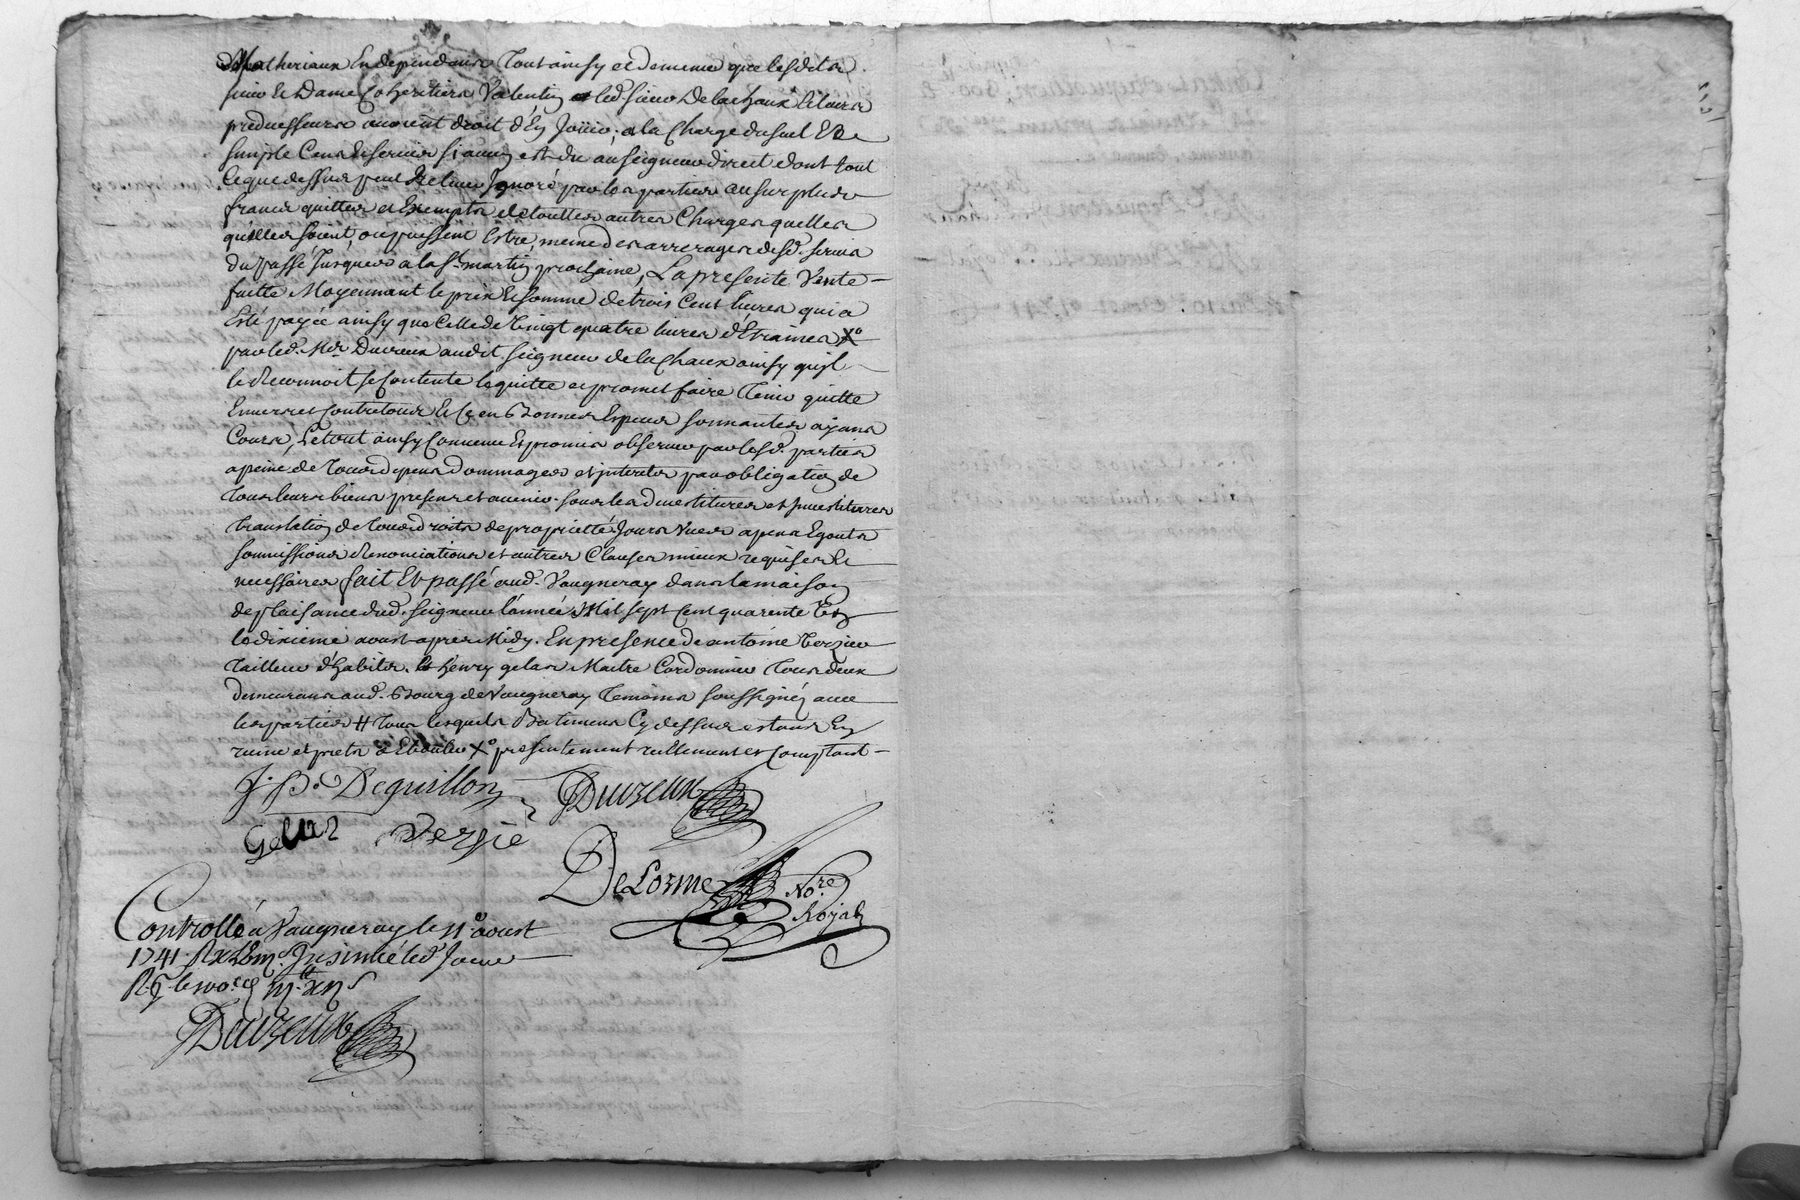 Matheriaux En dependans Tout ainsy et de meme que lesdits
sieur et Dame Coheritiers Valentin et led sieur Delachaux et leurs
predecesseurs avoient droit d'En Joüir, a la Charge du suel Et De
simple Cens Et servis si aucun est du au seigneur direct dont tout
ce que dessus peut Relever Ignoré par les parties au surplus
francs quittes et Exempts de touttes autres Charges quelles
quelles soient, ou puissent Estre, meme des arrerages desd. servis
du passé Jusques a la St. martin prochaine, La presente Vente
faitte Moyennant le prix Et somme de trois Cent livres qui a
Esté payée ainsy que Celle de Vingt quatre livres d'Etraines Xo
par led. Mer Duvreux audit seigneur de la Chaux ainsy qu'il
le Reconnoit se Contente le quitte et promet faire Tenir quitte
Envers et Contre tous Et Ce en Bonnes Especes sonnantes ayans
Cours, Le tout ainsy Convenu Et promis observer par lesd. parties
a peine de Tous depens Dommages et jnterets par obligation de
Tous leurs biens presens et avenir sous les devestitures et jnvestitures
translation de Tous droits de proprietté Jours Vues apens Egouts
soumissions Renonciations et autres Clauses mieux requises Et
necessaires fait Et passé aud. Vaugneray dans la maison
de plaisance dud. seigneur L'année Mil sept Cent quarente Un
le dixieme aoust apres Midy. En presence de antoine Verzieu
Tailleur d'habits. Et henry gelas Maitre Cordonnier Tous deux
demeurans aud. Bourg de Vaugneray Temoins soussignéz avec
les parties # Tous lesquels Batimens Cy dessus estans En
ruine et prets a Ebouler Xo presentement reellement et Comptant
J. P. Deguillon Duvreux
Gelas Verzie
DeLorme Nore.
Royal
Controllé a Vaugneray le 11e. aoust
1741
Duvreux